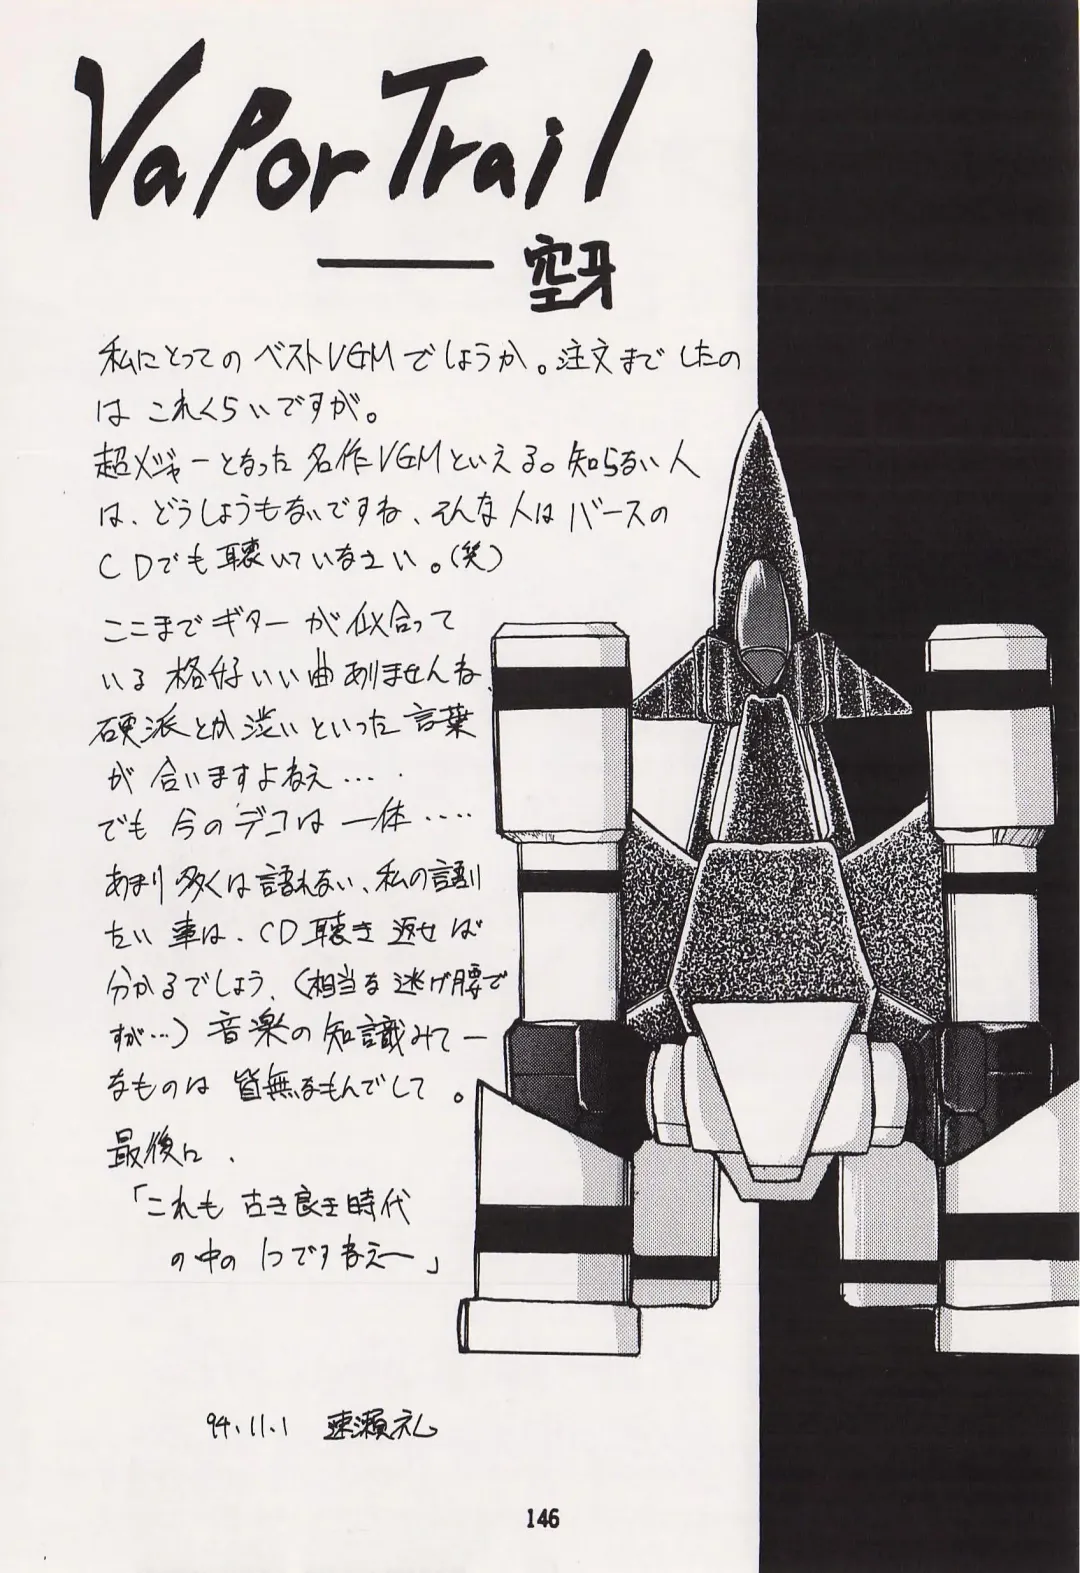 Vapor Trail
── 空牙
私にとってのベストVGMでしょうか。注文までしたの
はこれくらいですが。
超メジャーとなった名作VGMといえる。知らない人
は、どうしようもないですね、そんな人はバースの
CDでも聴いていなさい。(笑)
ここまでギターが似合って
いる格好いい曲ありませんね、
硬派とか渋いといった言葉
が合いますよねえ‥‥
でも今のデコは一体‥‥
あまり多くは語れない、私の語り
たい事は、CD聴き返せば
分かるでしょう、(相当な逃げ腰で
すが…)音楽の知識みてー
なものは皆無なもんでして。
最後に、
「これも古き良き時代
の中の1つですねえー」
94.11.1 速瀬礼
146